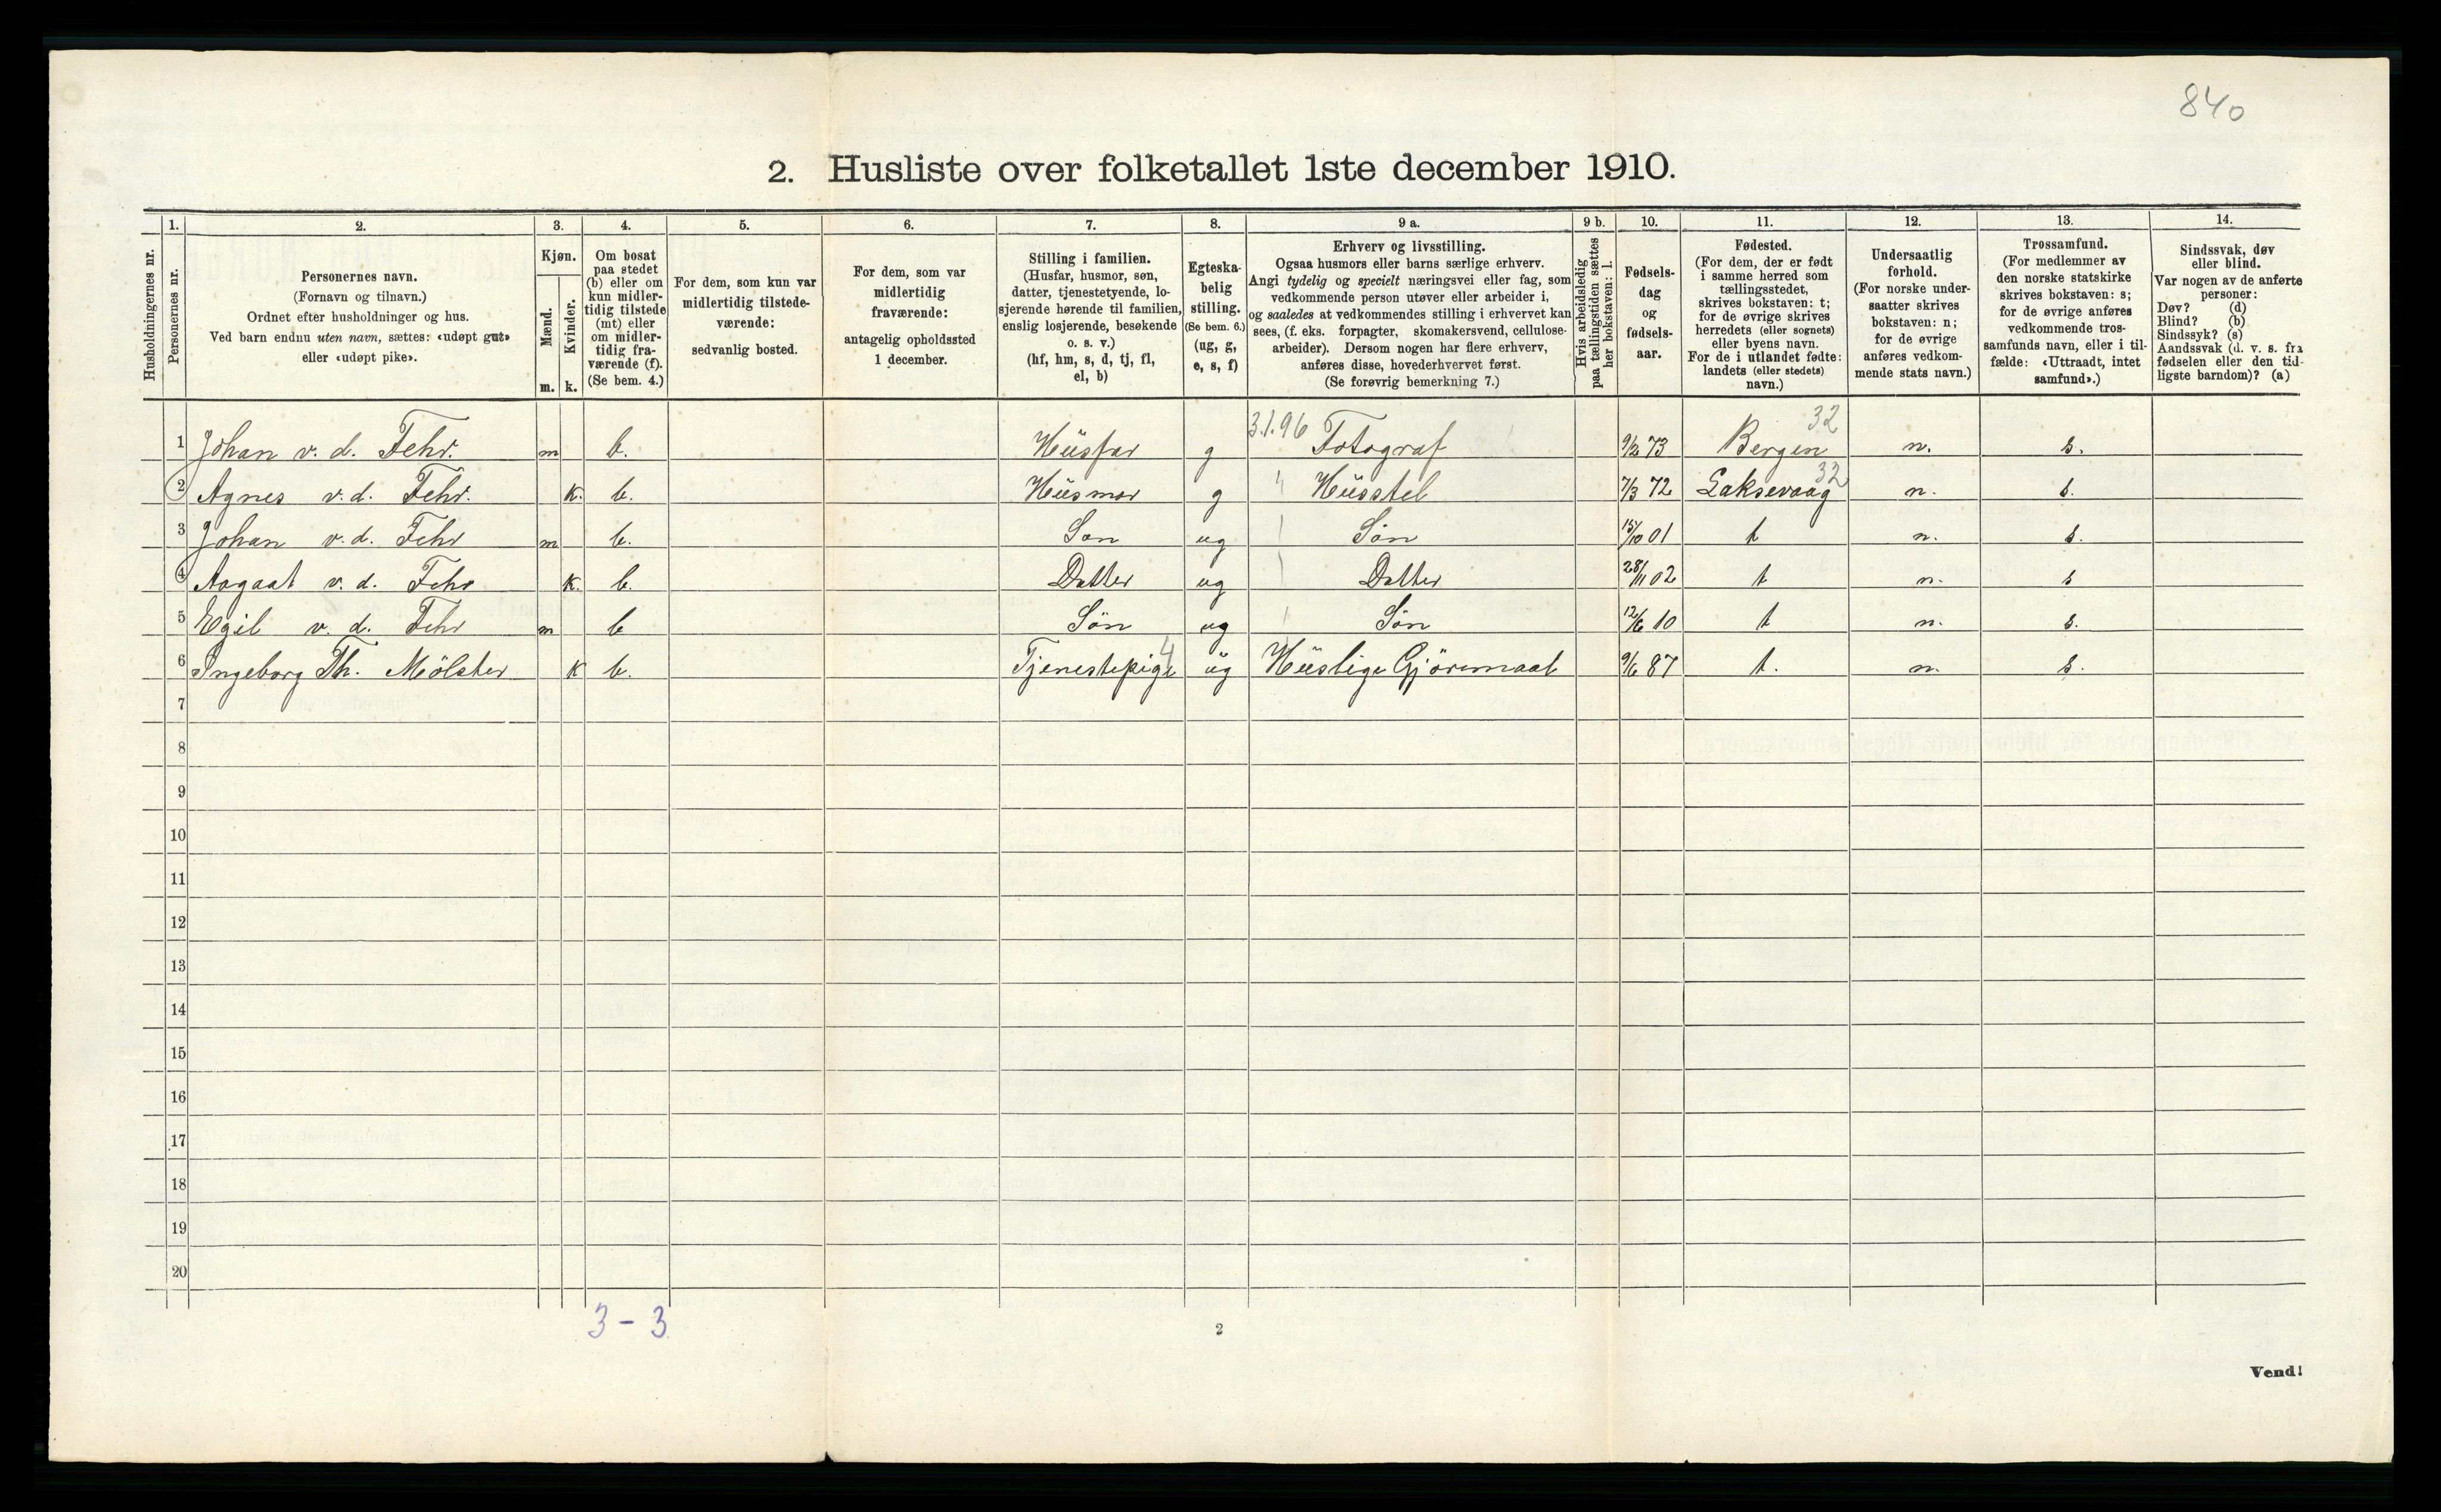 840
2. Husliste over folketallet 1ste december 1910.
Husholdningernes nr.
1.
Personernes nr.
2.
Personernes navn.
(Fornavn og tilnavn.)
Ordnet efter husholdninger og hus.
Ved barn endnu uten navn, sættes: «udøpt gut»
eller «udøpt pike».
3.
Kjøn.
Mænd.
Kvinder.
m. k.
4.
Om bosat
paa stedet
(b) eller om
kun midler-
tidig tilstede
(mt) eller
om midler-
tidig fra-
værende (f).
(Se bem. 4.)
5.
For dem, som kun var
midlertidig tilstede-
værende:
sedvanlig bosted.
6.
For dem, som var
midlertidig
fraværende:
antagelig opholdssted
1 december.
7.
Stilling i familien.
(Husfar, husmor, søn,
datter, tjenestetyende, lo-
sjerende hørende til familien,
enslig losjerende, besøkende
o. s. v.)
(hf, hm, s, d, tj, fl,
el, b)
8.
Egteska-
belig
stilling.
(Se bem. 6.)
(ug, g,
e, s, f)
9 a.
Erhverv og livsstilling.
Ogsaa husmors eller barns særlige erhverv.
Angi tydelig og specielt næringsvei eller fag, som
vedkommende person utøver eller arbeider i,
og saaledes at vedkommendes stilling i erhvervet kan
sees, (f. eks. forpagter, skomakersvend, cellulose-
arbeider). Dersom nogen har flere erhverv,
anføres disse, hovederhvervet først.
(Se forøvrig bemerkning 7.)
9 b.
Hvis arbeidsledig
paa tællingstiden sættes
her bokstaven: l.
10.
Fødsels-
dag
og
fødsels-
aar.
11.
Fødested.
(For dem, der er født
i samme herred som
tællingsstedet,
skrives bokstaven: t;
for de øvrige skrives
herredets (eller sognets)
eller byens navn.
For de i utlandet fødte:
landets (eller stedets)
navn.)
12.
Undersaatlig
forhold.
(For norske under-
saatter skrives
bokstaven: n;
for de øvrige
anføres vedkom-
mende stats navn.)
13.
Trossamfund.
(For medlemmer av
den norske statskirke
skrives bokstaven: s;
for de øvrige anføres
vedkommende tros-
samfunds navn, eller i til-
fælde: «Uttraadt, intet
samfund».)
14.
Sindssvak, døv
eller blind.
Var nogen av de anførte
personer:
Døv? (d)
Blind? (b)
Sindssyk? (s)
Aandssvak (d. v. s. fra
fødselen eller den tid-
ligste barndom)? (a)
3.1.96 32
1 Johan v. d. Fehr. m b. Hüsfar g Fotograf 9/2 73 Bergen n. s.
32
2 Agnes v. d. Fehr. K. b. Hüsmor g Hüsstel 7/3 72 Laksevaag n. s.
3 Johan v. d. Fehr m b. Søn ug Søn 15/10 01 t n. s.
4 Aagaat v. d. Fehr K. b. Datter ug Datter 28/11 02 t n. s
5 Egil v. d. Fehr m b Søn ug Søn 12/6 10 t n. s.
4
6 Ingeborg Th. Mölster K b. Tjenestepige üg Hüslige Gjöremaal 9/6 87 t. n. s.
7
8
9
10
11
12
13
14
15
16
17
18
19
20
3 - 3
2
Vend!